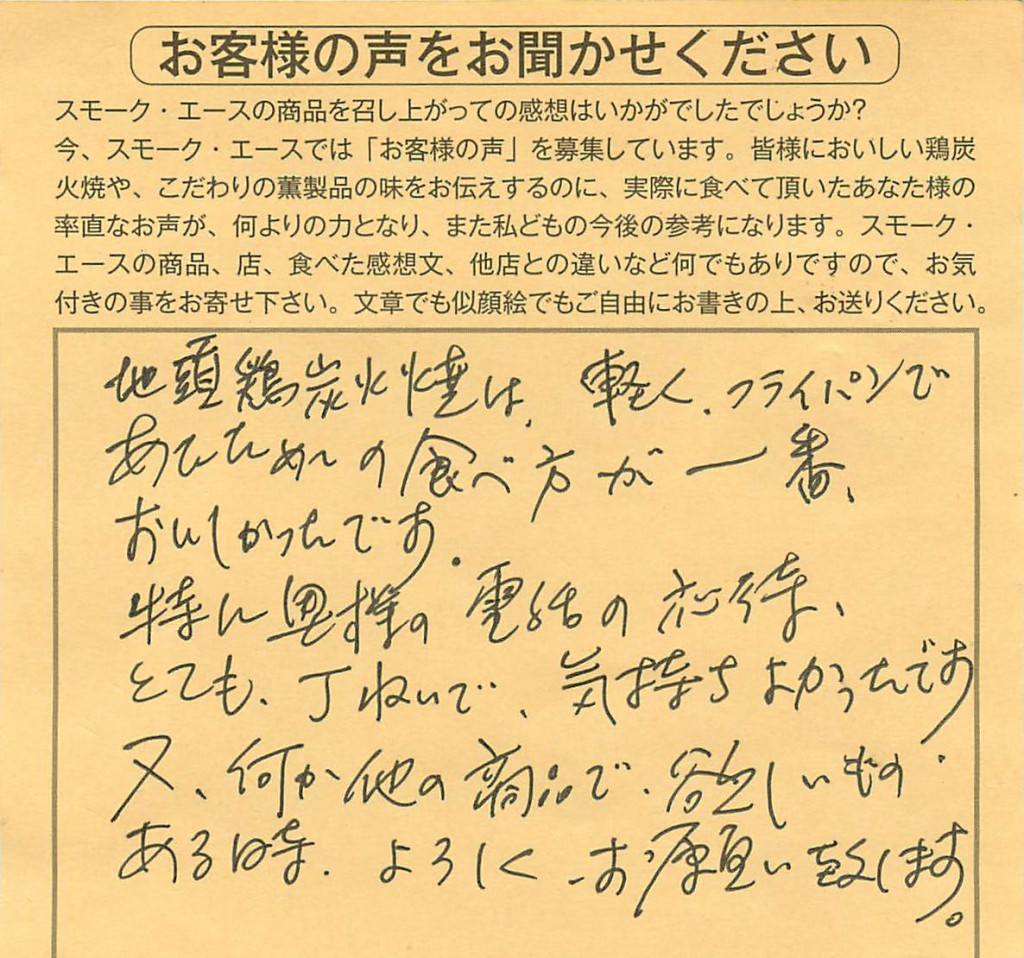 お客様の声をお聞かせください
スモーク・エースの商品を召し上がっての感想はいかがでしたでじょうか?
今、スモーク・エースでは「お客様の声」を募集しています。皆様においしい鶏炭
火焼や、こだわりの薫製品の味をお伝えするのに、実際に食べて頂いたあなた様の
率直なお声が、何よりの力となり、また私どもの今後の参考になります。スモーク・
エースの商品、店、食べた感想文、他店との違いなど何でもありですので、お気
付きの事をお寄せ下さい。文章でも似顔絵でもご自由にお書きの上、お送りください。
地頭鶏炭火焼は、軽く、フライパンで
あたためての食べ方が一番、
おいしかったです。
特に奥様の電話の応待、
とても、丁ねいで、気持ちよかったです
又、何か他の商品で、欲しいもの
ある時、よろしくお願い致します。